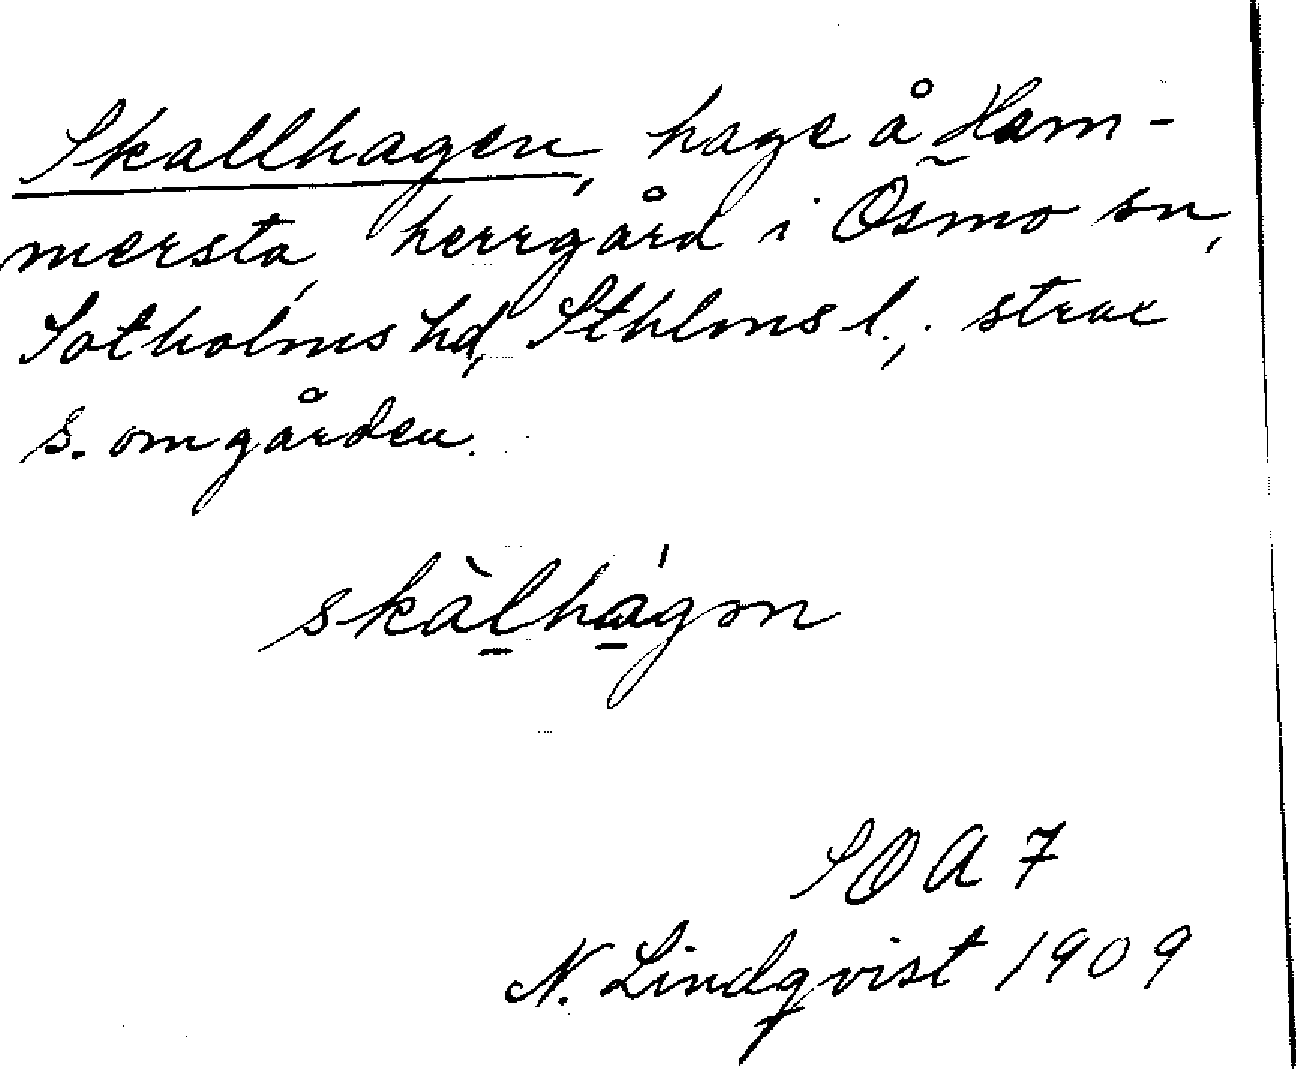 Skallhagen, hage å Ham-
mersta, herrgård i Ösmo sn,
Sotholms hd, Sthlms l.; strax
s. om gården.
skàlhágɷn
SOA 7
N. Lindqvist 1909